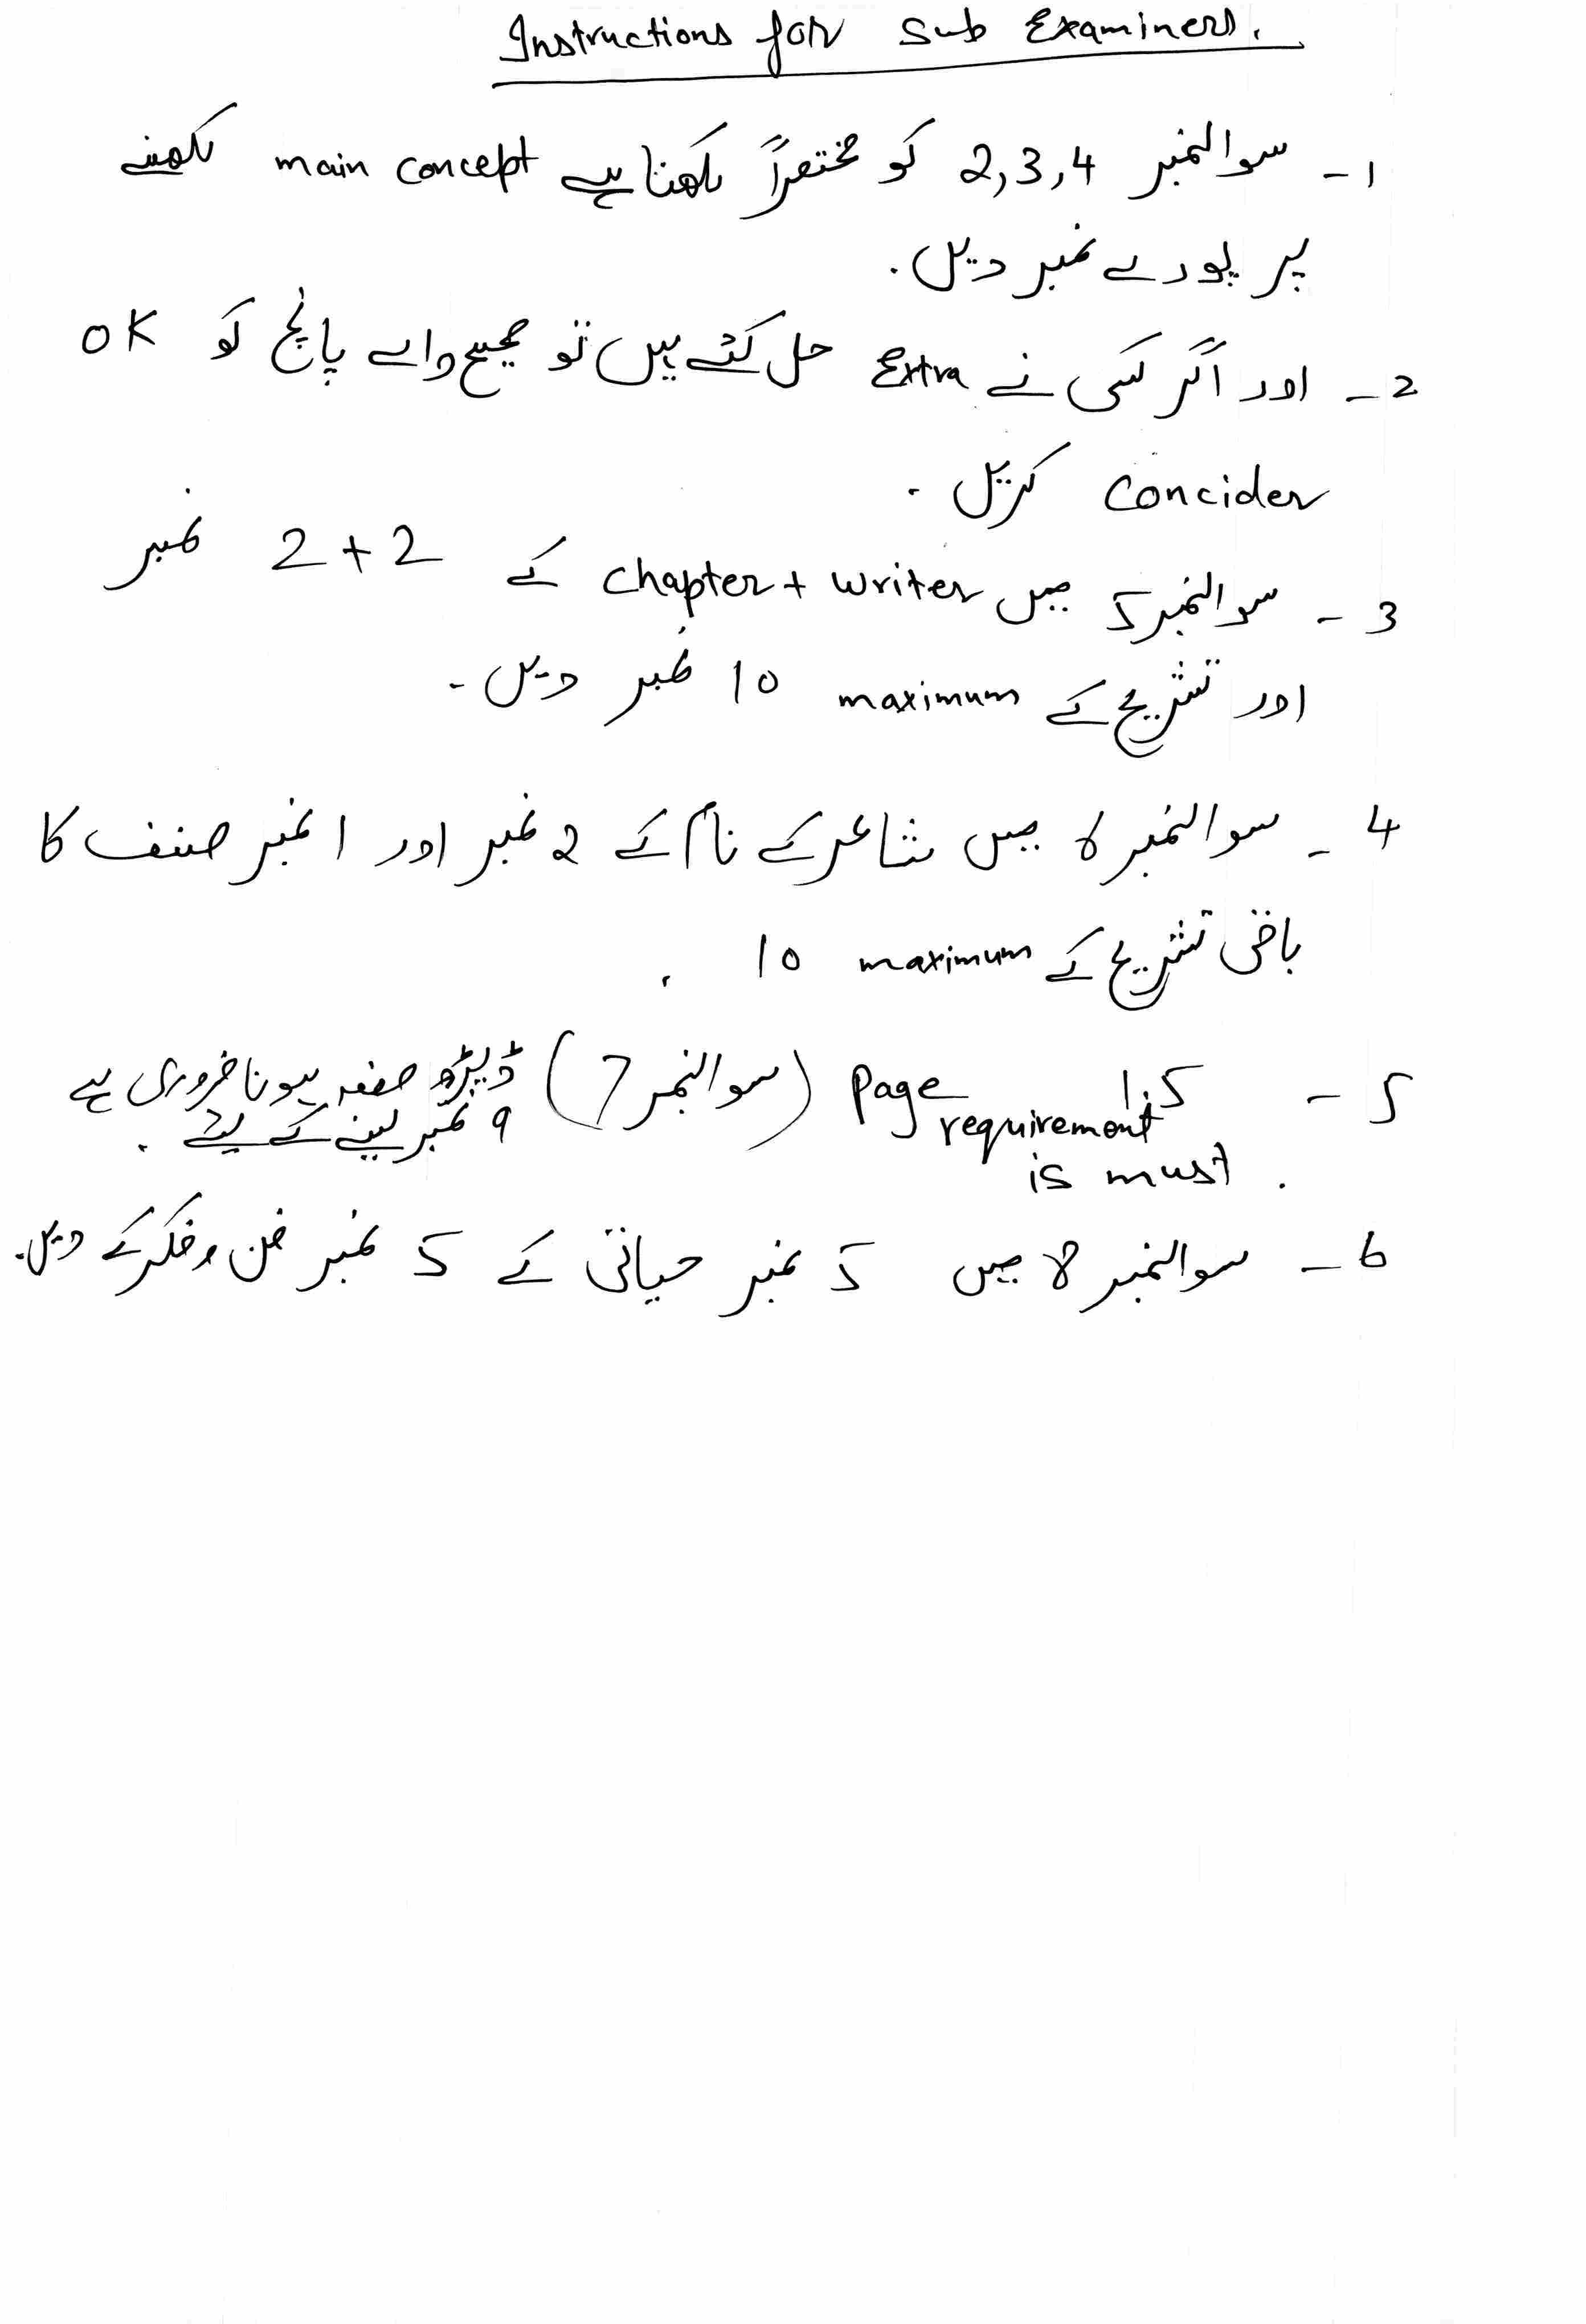 Instructions for Sub Examiners.
1- سوالنمبر 2,3,4 کو مختصراً لکھنا ہے main concept لکھنے
پر پورے نمبر دیں.
2- اور اگر کسی نے Extra حل کئے ہیں تو صحیح والے پانچ کو OK
Concider کریں.
3- سوالنمبر 5 میں Chapter + Writer کے 2+2 نمبر
اور تشریح کے maximum 10 نمبر دیں-
4- سوالنمبر 6 میں شاعر کے نام کے 2 نمبر اور 1 نمبر صنف کا
باقی تشریح کے maximum 10 .
5- Page (سوالنمبر 7) ڈیڑھ صفحہ ہونا ضروری ہے
requirement 9 نمبر لینے کے لیئے.
is must.
6- سوالنمبر 8 میں 5 نمبر حیاتی کے 5 نمبر فن و فکر کے دیں.